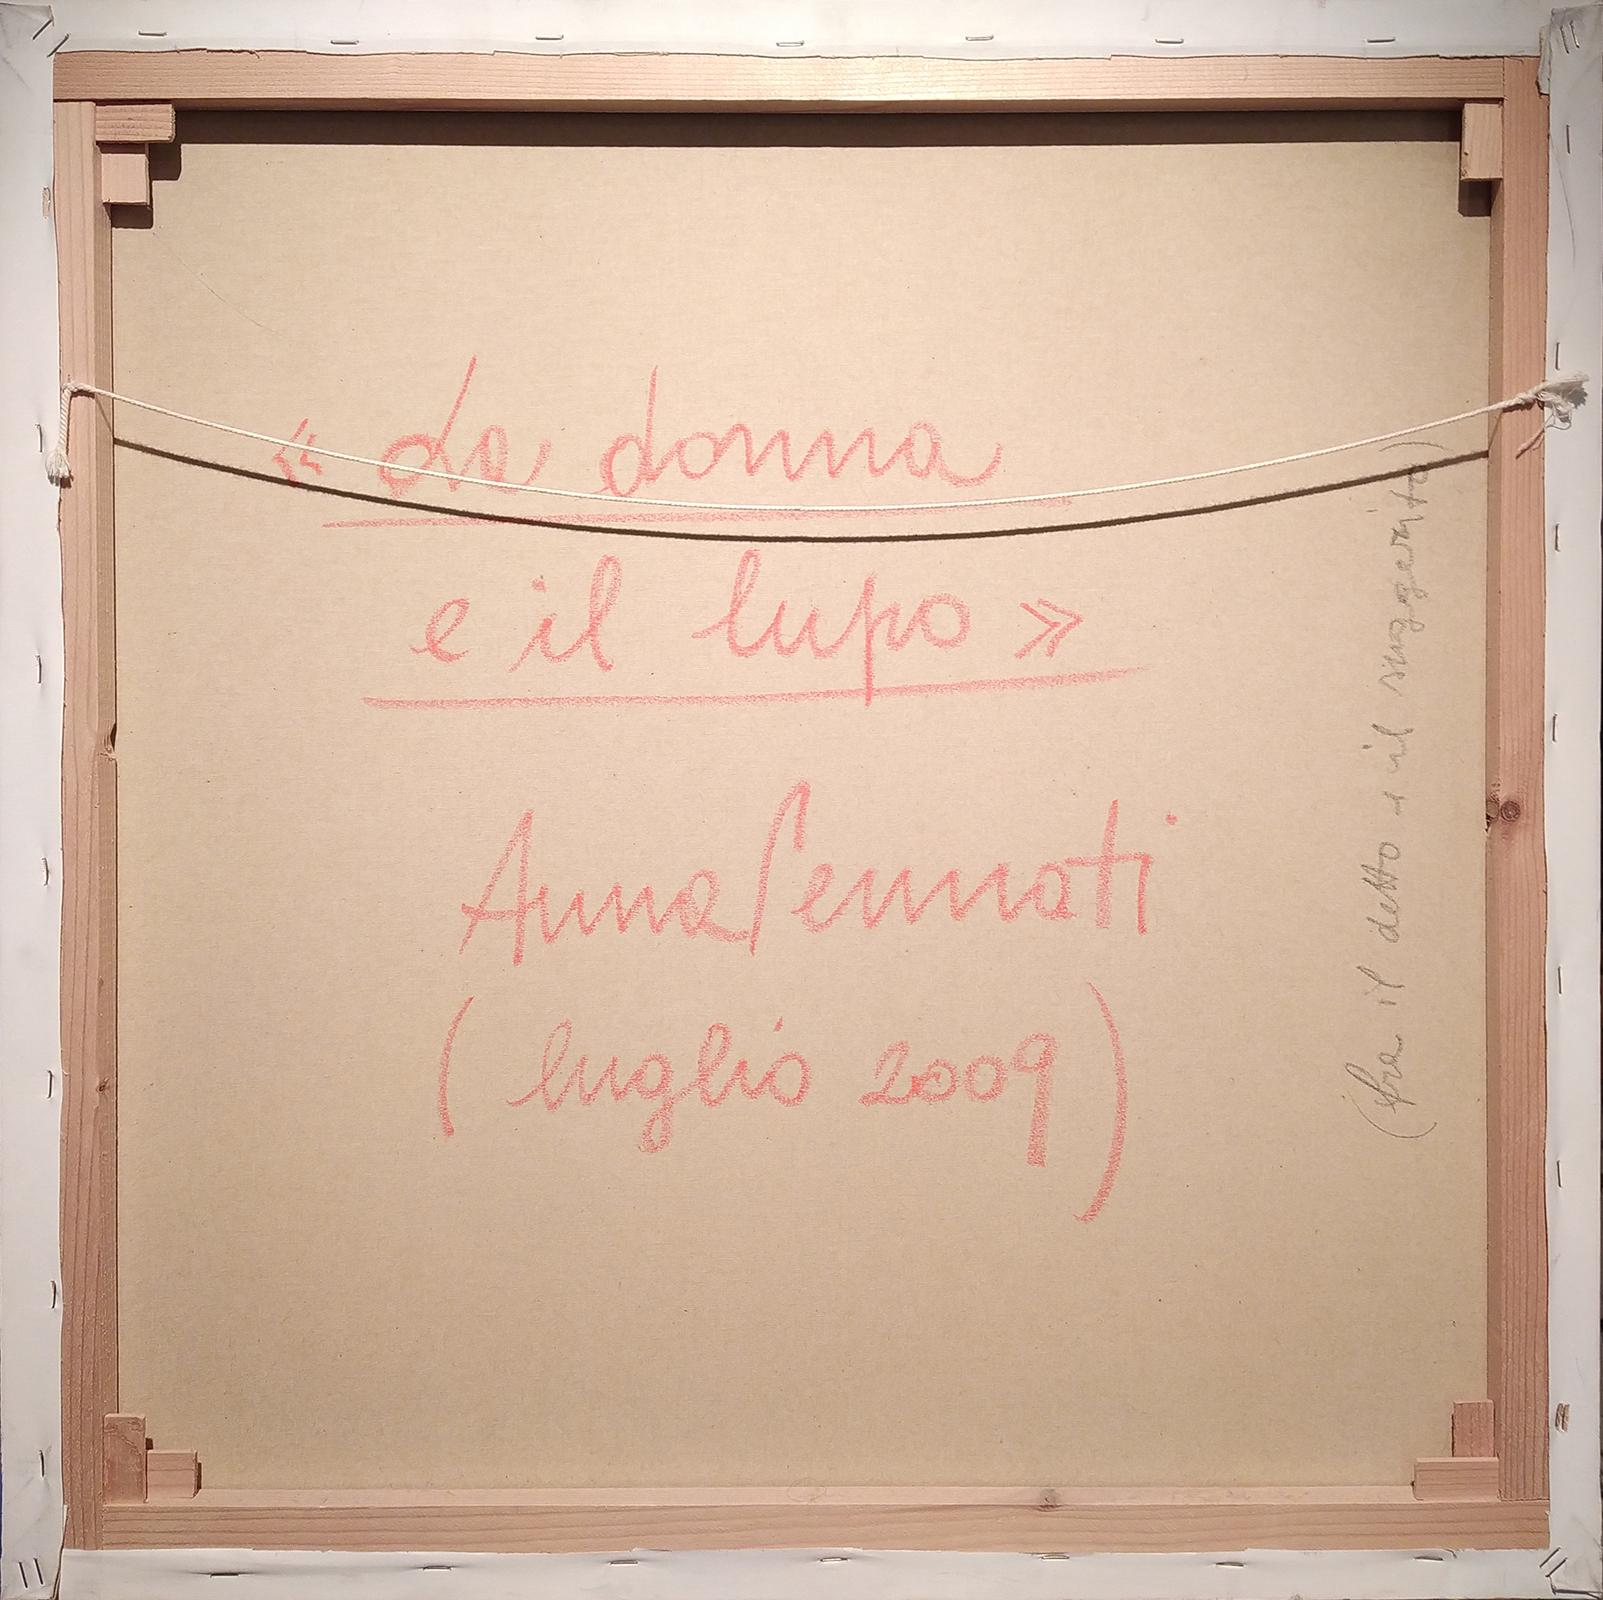 « La donna
e il lupo »
Anna Pennati
( luglio 2009 )
(fra il detto e il suggerito)